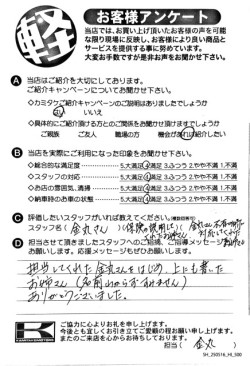 軽
お客様アンケート
当店では、お買い上げ頂いたお客様の声を可能
な限り現場に反映し、お客様により良い商品と
サービスを提供する事に努めています。
大変お手数ですが是非お声をお聞かせ下さい。
A 当店はご紹介を大切にしてあります。
ご紹介キャンペーンについてお聞かせ下さい。
◇カミタケご紹介キャンペーンのご説明はありましたでしょうか
はい いいえ
◇具体的にご紹介頂ける方とのご関係をお聞かせ頂けますでしょうか
ご親族 ご友人 職場の方 機会があれば紹介したい
B 当店を実際にご利用になった印象をお聞かせ下さい。
◇総合的な満足度 5.大満足 4.満足 3.ふつう 2.やや不満 1.不満
◇スタッフの対応 5.大満足 4.満足 3.ふつう 2.やや不満 1.不満
◇お店の雰囲気、清掃 5.大満足 4.満足 3.ふつう 2.やや不満 1.不満
◇納車時のお車の状態 5.大満足 4.満足 3.ふつう 2.やや不満 1.不満
C 評価したいスタッフがいれば教えてください。(複数回答可)
スタッフ名( 金丸さん )(保険の説明して
くれたお姉さん
D 担当させて頂きましたスタッフへのご結構、ご指導メッセージを
お願いします。応援メッセージもぜひお願いします。
担当してくれた金丸さんをはじめ、上にも書いた
お姉さん(名前わからずすみません)
ありがとうございました。
K
ご協力に心よりお礼を申し上げます。
今後とも宜しくお引き立てご愛顧の程お願い申し上げます。
またのご来店を心からお待ちしております。
担当( 金丸 )
SH_250516_HI_500